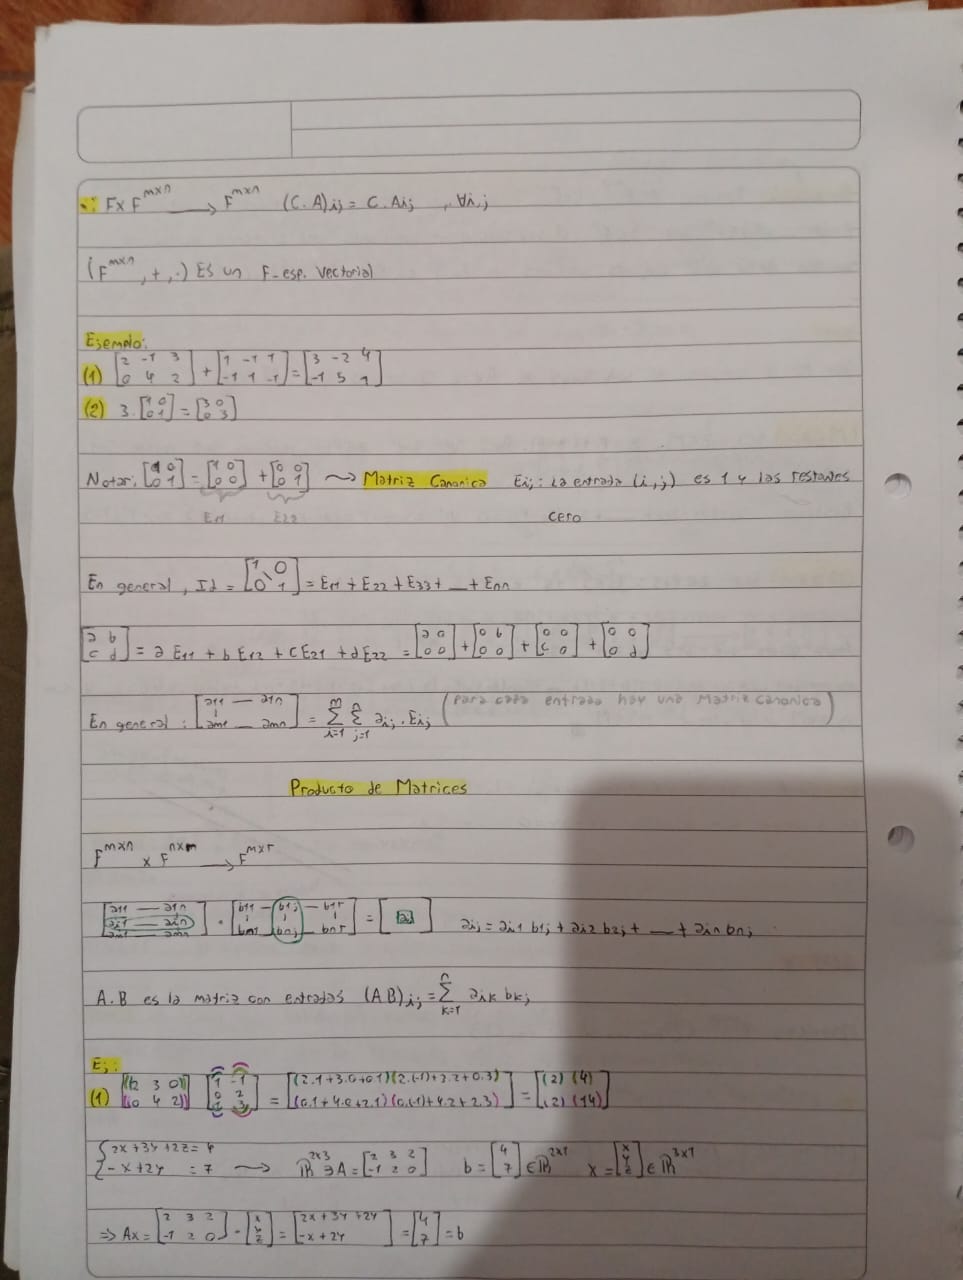 ·: F x F^{mxn} → F^{mxn} (C.A)ij = C.Aij , ∀i,j
(F^{mxn}, +, ·) Es un F-esp. Vectorial
Ejemplo:
(1) [2 -1 3; 0 4 2] + [1 -1 1; -1 1 -1] = [3 -2 4; -1 5 1]
(2) 3.[1 0; 0 1] = [3 0; 0 3]
Notar: [1 0; 0 1] = [1 0; 0 0] + [0 0; 0 1] ⇝ Matriz Canonica Eij: La entrada (i,j) es 1 y las restantes
E11 E22 cero
En general, Id = [1 0; 0 1] = E11 + E22 + E33 + _ + Enn
[a b; c d] = a E11 + b E12 + c E21 + d E22 = [a 0; 0 0] + [0 b; 0 0] + [0 0; c 0] + [0 0; 0 d]
En general: [a11 — a1n; am1 _ amn] = Σ_{i=1}^{m} Σ_{j=1}^{n} aij . Eij (Para cada entrada hay una Matriz canonica)
Producto de Matrices
F^{mxn} x F^{nxm} → F^{mxr}
[a11 — a1n; ai1 — ain; am1 — amn] · [b11 – b1j – b1r; bm1 bnj – bnr] = [aij] aij = ai1 b1j + ai2 b2j + _ + ain bnj
A.B es la matriz con entradas (AB)ij = Σ_{k=1}^{n} aik bkj
Ej:
(1) [2 3 0; 0 4 2] [1 -1; 0 2; 1 3] = [(2.1+3.0+0.1)(2.(-1)+2.2+0.3); (0.1+4.0+2.1)(0.(-1)+4.2+2.3)] = [(2) (4); (2) (14)]
{2x+3y+2z=4
{-x+2y =7 → ℝ^{2x3} ∋ A = [2 3 2; -1 2 0] b = [4; 7] ∈ ℝ^{2x1} x = [x; y; z] ∈ ℝ^{3x1}
⇒ Ax = [2 3 2; -1 2 0] · [x; y; z] = [2x+3y+2y; -x+2y] = [4; 7] = b